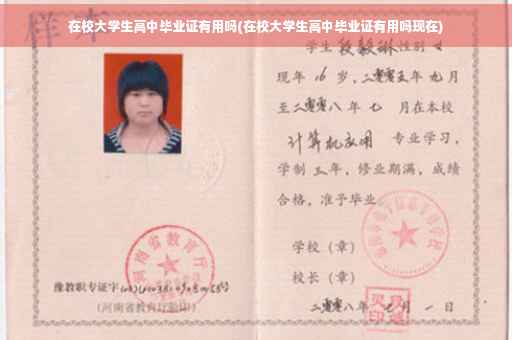 在校大学生高中毕业证有用吗(在校大学生高中毕业证有用吗现在)
样本
学生 段毅琳 性别 女
现年 16 岁，二零零五年 九月
至二零零八年 七 月在本校
计算机应用 专业学习，
学制 三年，修业期满，成绩
合格，准予毕业
学校（章）
校长（章）
河南省教育厅
豫教职专证字
(河南省教育厅验印)
二零零八年 七 月 一 日